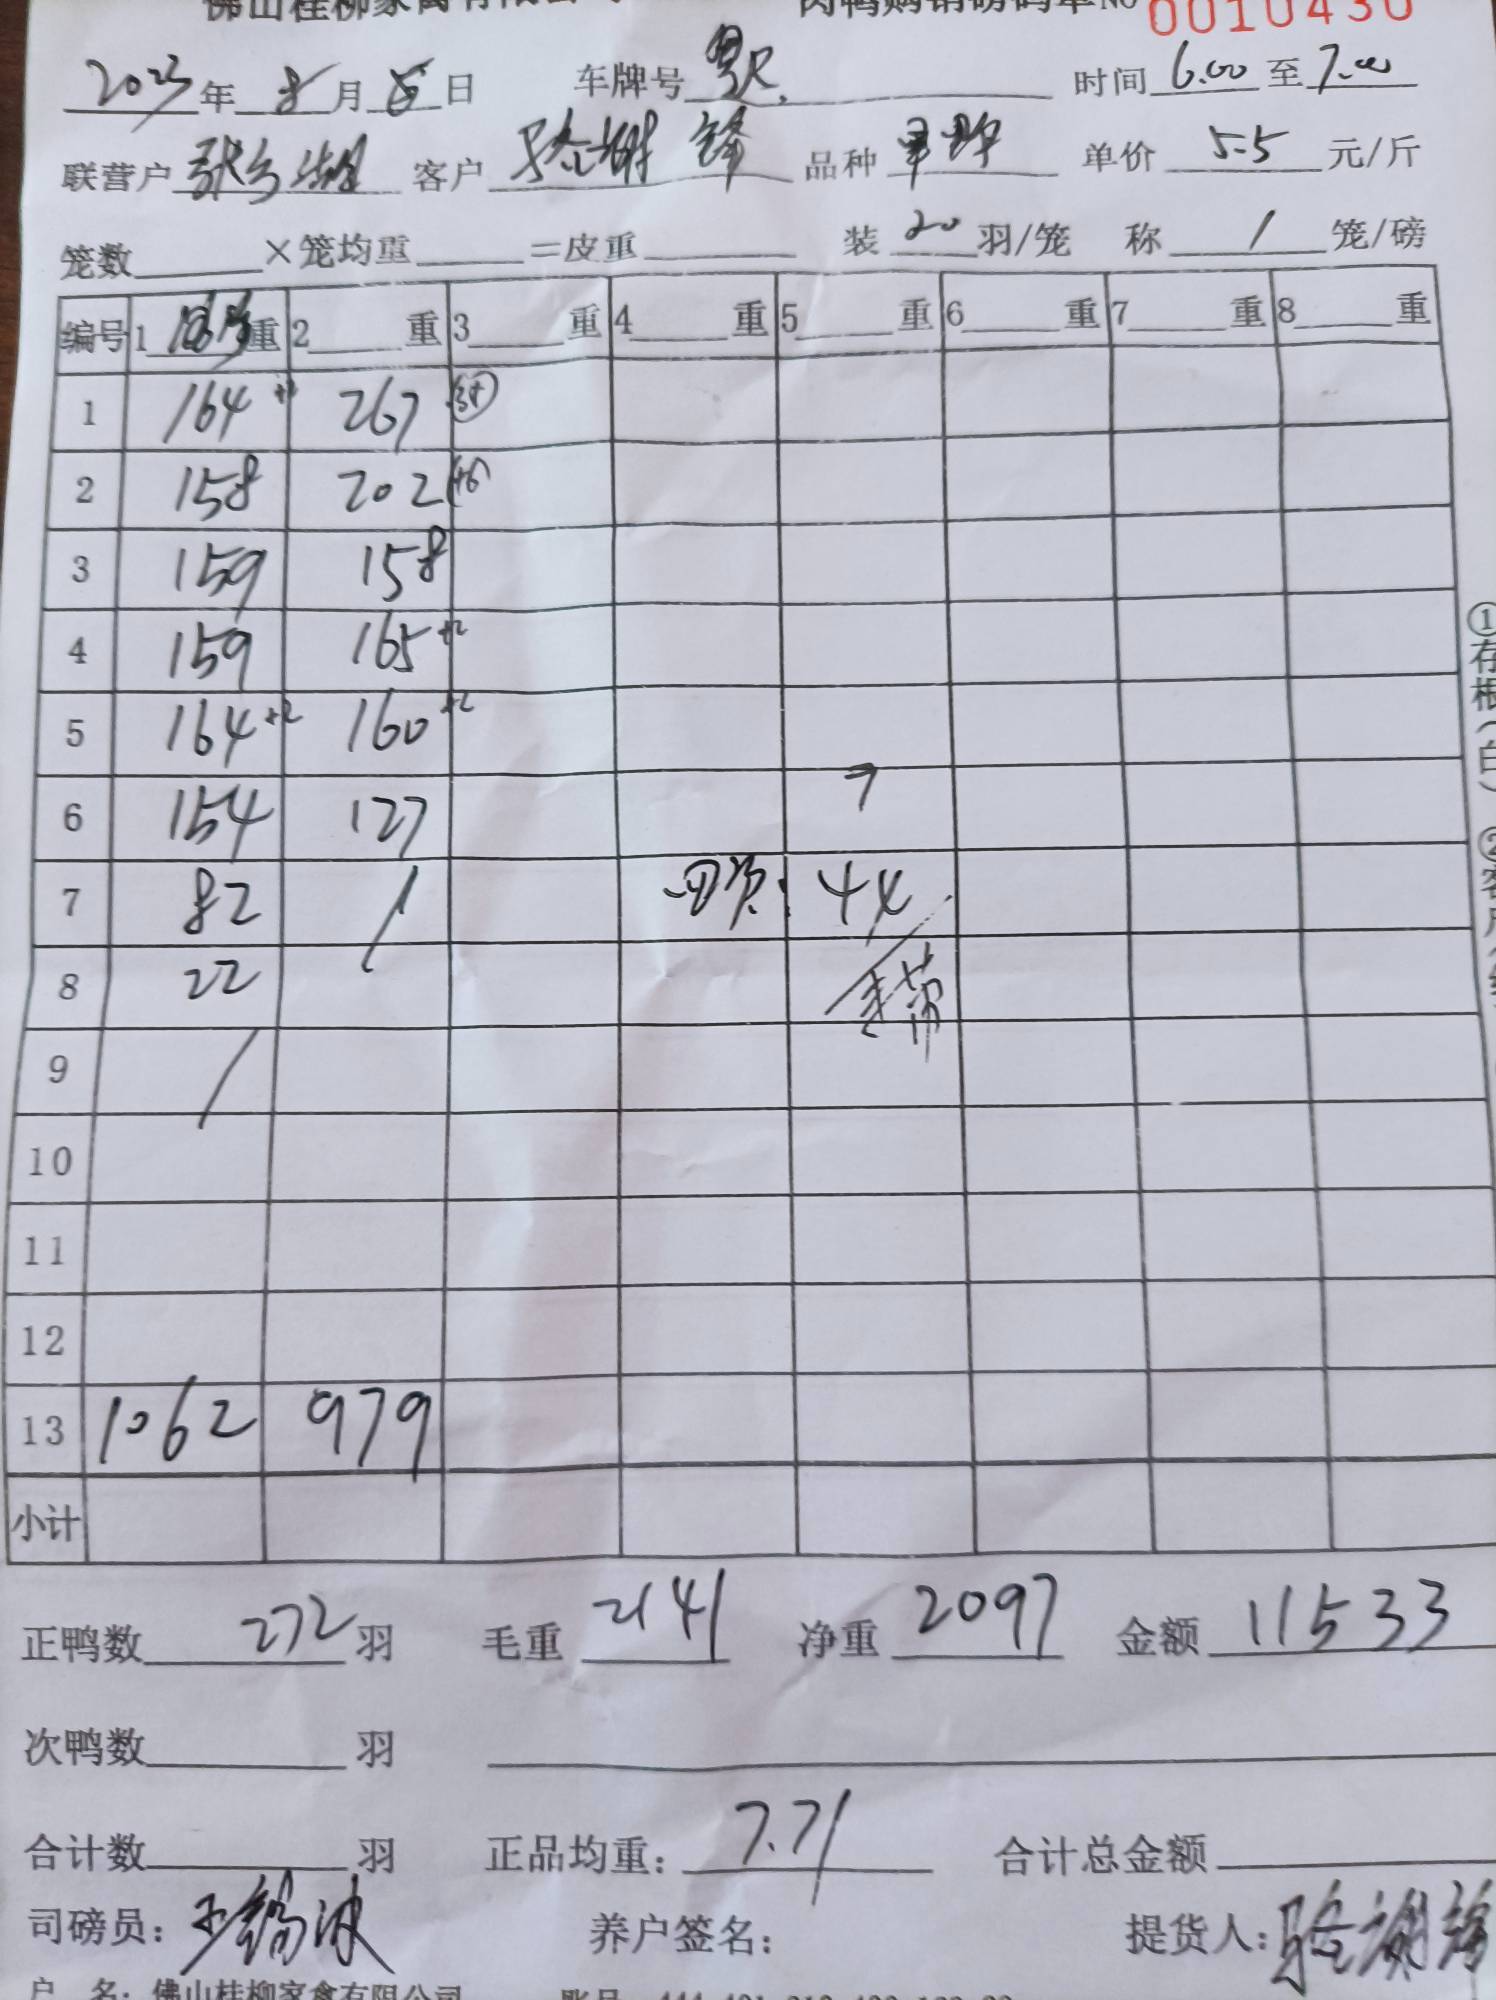 佛山桂柳家禽有限公司 肉鸭购销磅码单 No 0010430
2023年8月8日 车牌号 时间6.00至7.00
联营户 客户 骆谢锋 品种 单价5.5元/斤
笼数 ×笼均重 =皮重 装20羽/笼 称1笼/磅
编号 1 重 2 重 3 重 4 重 5 重 6 重 7 重 8 重
1 164 267
2 158 202
3 159 158
4 159 165+2
5 164+2 160+2
6 154 127
7 82 / 44
8 22
9 /
10
11
12
13 1062 979
小计
正鸭数272羽 毛重2141 净重2097 金额11533
次鸭数 羽
合计数 羽 正品均重：7.71 合计总金额
司磅员： 养户签名： 提货人：骆谢锋
户 名：佛山桂柳家禽有限公司 账号
①存根（白）②客户